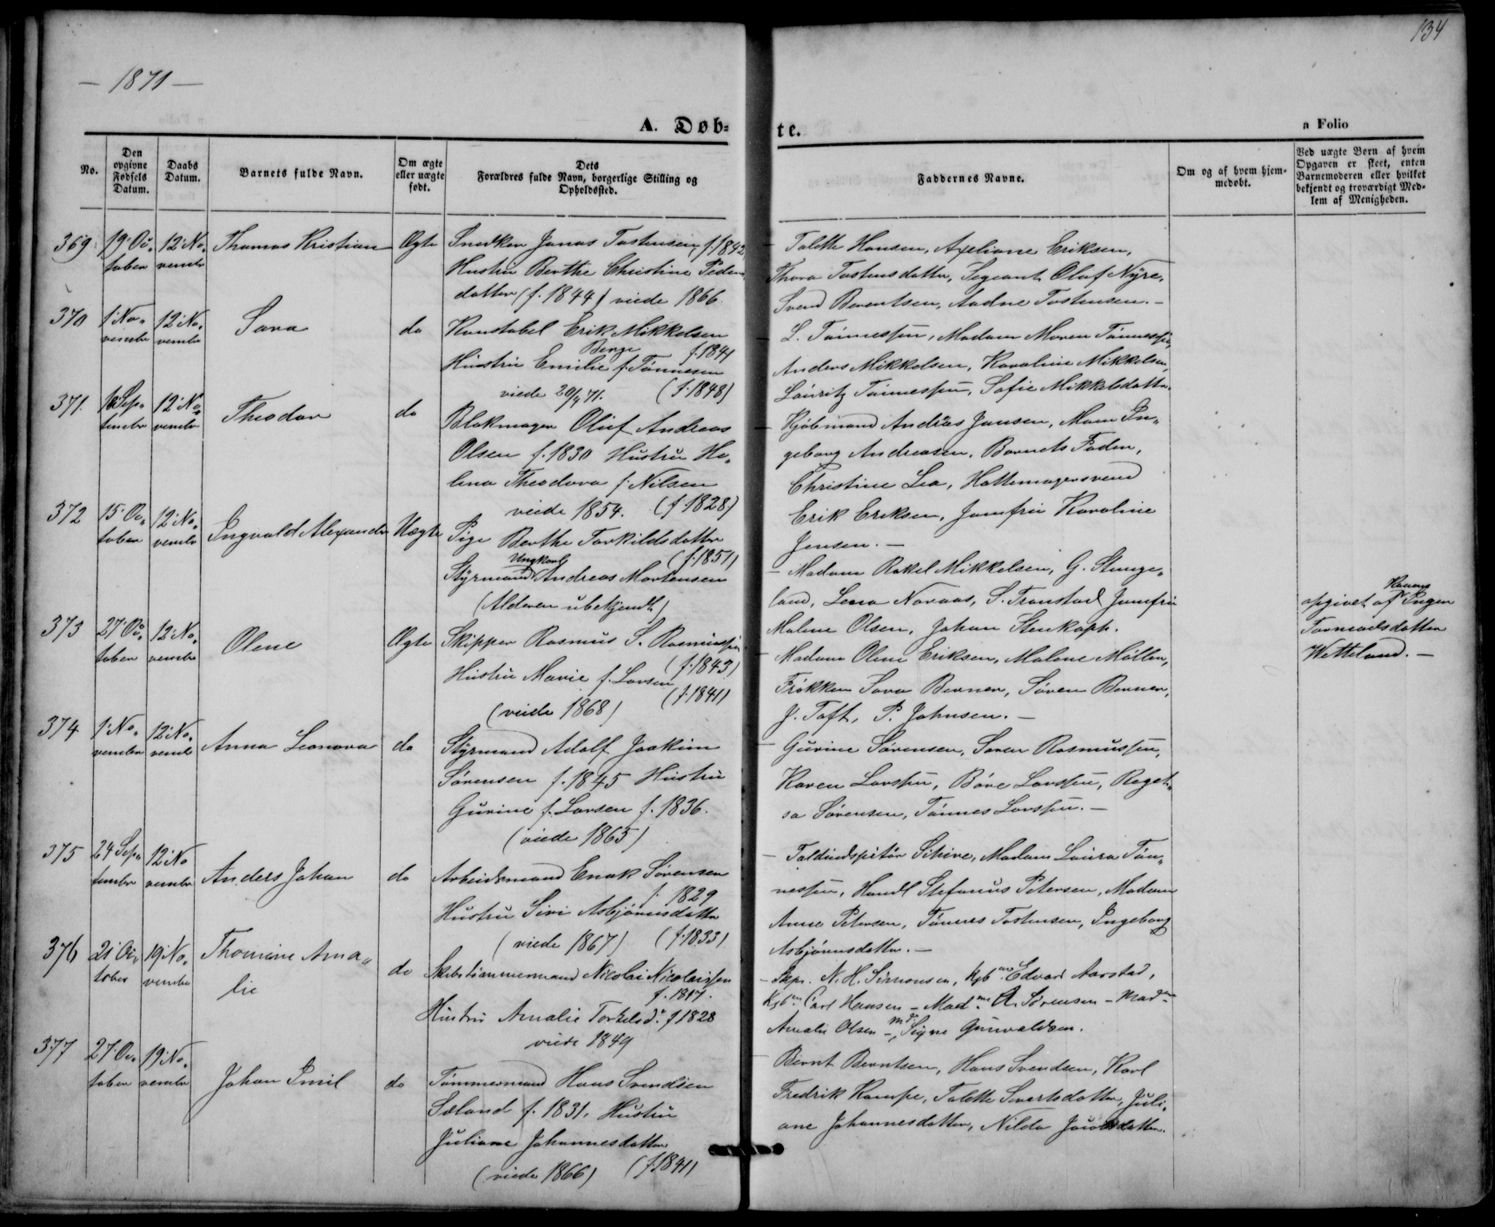 134
— 1871 —
A. Døb=
te.
a Folio
No.
Den opgivne Fødsels Datum.
Daabs Datum.
Barnets fulde Navn.
Om ægte eller uægte født.
Dets Forældres fulde Navn, borgerlige Stilling og Opholdssted.
Faddernes Navne.
Om og af hvem hjem-
medøbt.
Ved uægte Børn af hvem
Opgaven er skeet, enten
Barnemoderen eller hvilket
bekjendt og troværdigt Med-
lem af Menigheden.
369. 19. Oc- 12 No- Thomas Kristian Ægte Snedker Jonas Tostensen f. 1842
tober vember Hustru Berthe Christine Peders
datter (f. 1844) viede 1866.
Tolette Hansen, Axeliane Eriksen,
Thora Tostensdatter, Sergeant Olaf Nyre,
Svend Berentsen, Aadne Tostensen. —
370 1. No- 12 No. Sara do Konstabel Erik Mikkelsen
vember vember Berge f. 1841
Hustru Emilie f. Tønnesen
viede 20/4 71. (f. 1848)
L. Tønnessen, Madam Maren Tønnessen,
Anders Mikkelsen, Karoline Mikkelsen,
Lauritz Tønnessen, Sofie Mikkelsdatter.
371. Sep- 12 No- Theodor do Blokmager Oluf Andreas
tember vember Olsen f. 1830 Hustru He-
lena Theodora f. Nilsen
viede 1854. (f. 1828)
Kjøbmand Andreas Jansen, Mam In-
geborg Andreasen, Barnets Fader,
Christine Lea, Hattemagersvend
Erik Eriksen, Jomfru Karoline
Jensen. —
372 15. Oc- 12 No. Ingvald Alexander Uægte Pige Berthe Torkildsdatter
tober vember (f. 1851)
Ungkarl
Styrmand Andreas Mortensen
(Alderen ubekjendt)
— Madam Rakel Mikkelsen, G. Stange-
land, Lena Naraas, S. Transtad Jomfru
Malene Olsen, Johan Stenkoph.
Karens
opgivet af Inger
Tormodsdatter
Wetteland. —
373 27 Oc- 12 No. Olene Ægte Skipper Rasmus S. Rasmussen
tober vember (f. 1843)
Hustru Marie f. Larsen
(f. 1841)
(viede 1868)
— Madam Olene Eriksen, Malene Møller,
Frøkken Sara Berner, Søren Berner,
J. Toft, P. Johnsen. —
374 1. No. 12 No. Anna Leonora do Styrmand Adolf Joakim
vember vember Sørensen f. 1845 Hustru
Gurine f. Larsen f. 1836.
(viede 1865)
— Gurine Sørensen, Soren Rasmussen,
Karen Larssen, Børe Larssen, Raget-
sa Sørensen, Tønnes Larssen. —
375 24 Sep- 12 No Anders Johan do Arbeidsmand Enok Sørensen
tember vember f. 1829
Hustru Siri Asbjørnsdatter
(viede 1867) (f. 1833)
— Toldindspektør Schive, Madam Laura Tøn-
nessen, Handl Stefanus Petersen, Madam
Anne Petersen, Tønnes Tostensen, Ingeborg
Asbjørnsdatter. —
376 21 Oc- 19 No. Thomine Ama- do Skibstømmermand Nicolai Nicolaissen
tober vember lie f. 1817.
Hustru Amalie Torkelsdr. f 1828
viede 1849
— Skpr. N. H. Simonsen, Kjbm Edvard Aarstad,
Kjbm. Carl Hansen — Madme A. Sørensen — Madme
Amalie Olsen —, Signe Grinvaldsen.
377 27 Oc- 19 No. Johan Emil do Tømmermand Hans Svendsen
tober vember Sæland f. 1831. Hustru
Juliane Johannesdatter
(viede 1866) (f. 1841)
— Bernt Berntsen, Hans Svendsen, Karl
Fredrik Kampe, Tolette Svertsdatter, Juli-
ane Johannesdatter, Nilda Jacobsdatter.